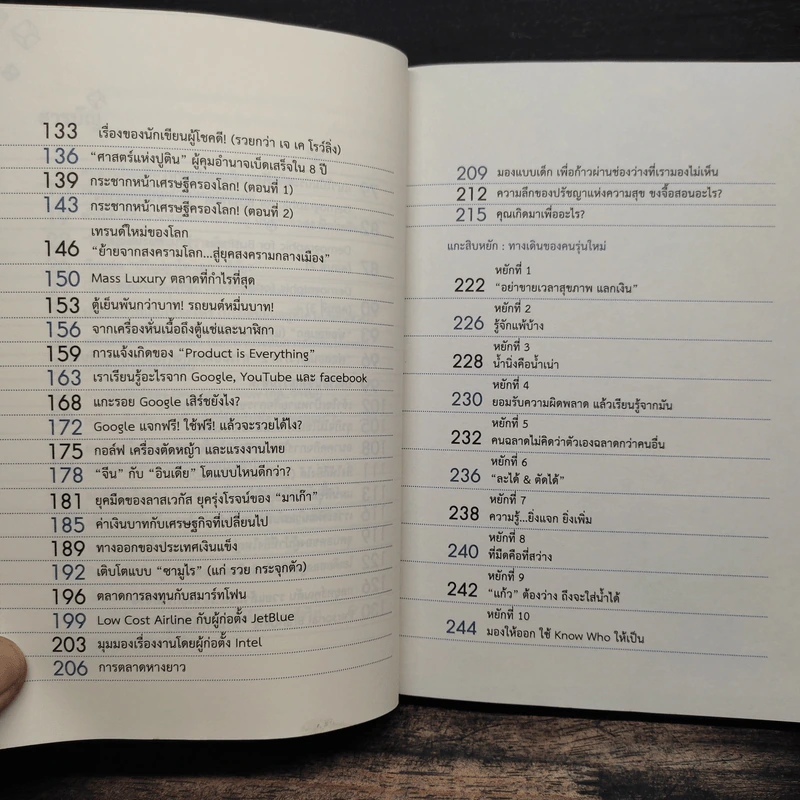 133 เรื่องของนักเขียนผู้โชคดี! (รวยกว่า เจ เค โรว์ลิ่ง)
136 “ศาสตร์แห่งปูติน” ผู้คุมอำนาจเบ็ดเสร็จใน 8 ปี
139 กระชากหน้าเศรษฐีครองโลก! (ตอนที่ 1)
143 กระชากหน้าเศรษฐีครองโลก! (ตอนที่ 2)
เทรนต์ใหม่ของโลก
146 “ย้ายจากสงครามโลก...สู่ยุคสงครามกลางเมือง”
150 Mass Luxury ตลาดที่กำไรที่สุด
153 ตู้เย็นพันกว่าบาท! รถยนต์หมื่นบาท!
156 จากเครื่องหั่นเนื้อถึงตู้แช่และนาฬิกา
159 การแจ้งเกิดของ “Product is Everything”
163 เราเรียนรู้อะไรจาก Google, YouTube และ facebook
168 แกะรอย Google เสิร์ชยังไง?
172 Google แจกฟรี! ใช้ฟรี! แล้วจะรวยได้ไง?
175 กอล์ฟ เครื่องตัดหญ้า และแรงงานไทย
178 “จีน” กับ “อินเดีย” โตแบบไหนดีกว่า?
181 ยุคมืดของลาสเวกัส ยุครุ่งโรจน์ของ “มาเก๊า”
185 ค่าเงินบาทกับเศรษฐกิจที่เปลี่ยนไป
189 ทางออกของประเทศเงินแข็ง
192 เติบโตแบบ “ซามูไร” (แก่ รวย กระจุกตัว)
196 ตลาดการลงทุนกับสมาร์ทโฟน
199 Low Cost Airline กับผู้ก่อตั้ง JetBlue
203 มุมมองเรื่องงานโดยผู้ก่อตั้ง Intel
206 การตลาดหางยาว
209 มองแบบเด็ก เพื่อก้าวผ่านช่องว่างที่เรามองไม่เห็น
212 ความลึกของปรัชญาแห่งความสุข ขงจื้อสอนอะไร?
215 คุณเกิดมาเพื่ออะไร?
แกะสิบหยัก : ทางเดินของคนรุ่นใหม่
หยักที่ 1
222 “อย่าขายเวลาสุขภาพ แลกเงิน”
หยักที่ 2
226 รู้จักแพ้บ้าง
หยักที่ 3
228 น้ำนิ่งคือน้ำเน่า
หยักที่ 4
230 ยอมรับความผิดพลาด แล้วเรียนรู้จากมัน
หยักที่ 5
232 คนฉลาดไม่คิดว่าตัวเองฉลาดกว่าคนอื่น
หยักที่ 6
236 “ละได้ & ตัดได้”
หยักที่ 7
238 ความรู้...ยิ่งแจก ยิ่งเพิ่ม
หยักที่ 8
240 ที่มืดคือที่สว่าง
หยักที่ 9
242 “แก้ว” ต้องว่าง ถึงจะใส่น้ำได้
หยักที่ 10
244 มองให้ออก ใช้ Know Who ให้เป็น